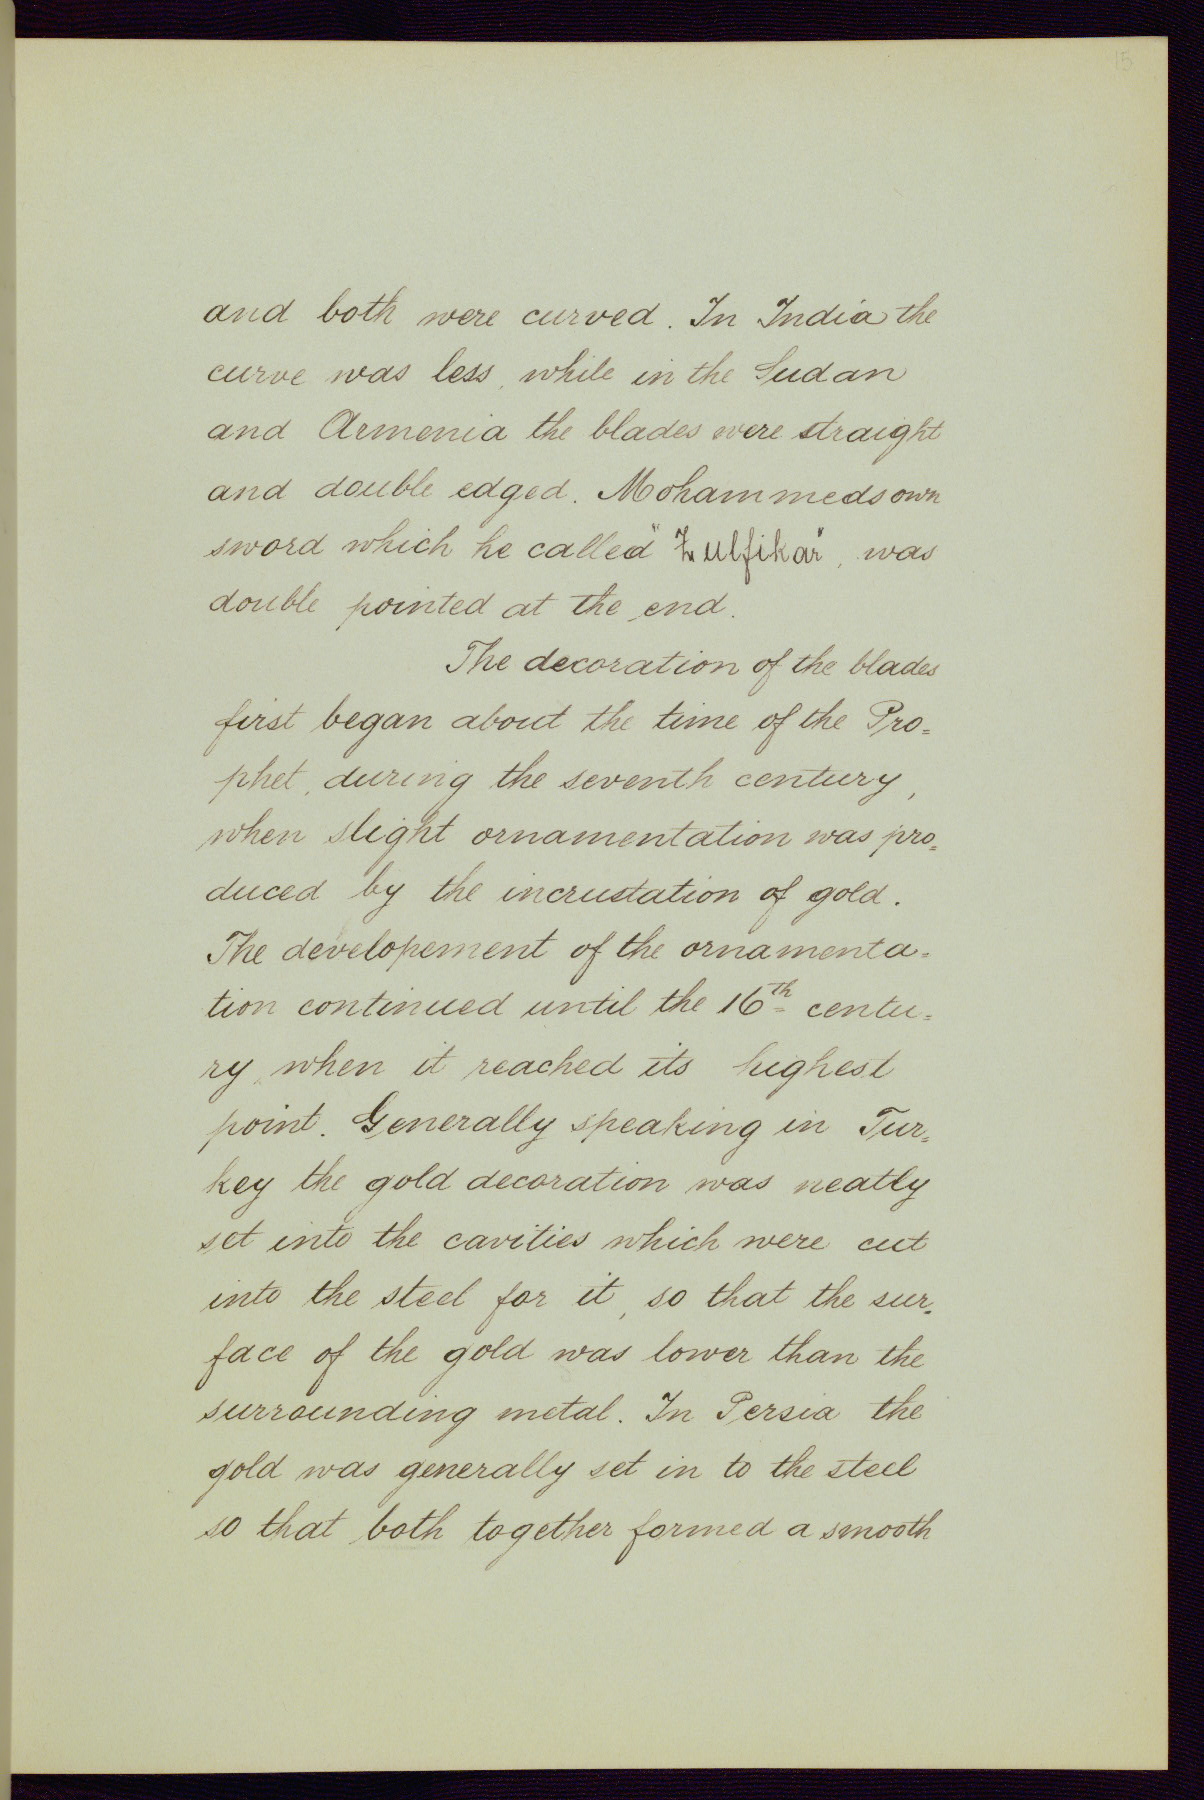 15
and both were curved. In India the
curve was less, while in the Sudan
and Armenia the blades were straight
and double edged. Mohammeds own
sword which he called "Zulfikar", was
double pointed at the end.
The decoration of the blades
first began about the time of the Pro=
phet, during the seventh century,
when slight ornamentation was pro=
duced by the incrustation of gold.
The developement of the ornamenta=
tion continued until the 16th centu=
ry, when it reached its highest
point. Generally speaking in Tur=
key the gold decoration was neatly
set into the cavities which were cut
into the steel for it, so that the sur=
face of the gold was lower than the
surrounding metal. In Persia the
gold was generally set in to the steel
so that both together formed a smooth